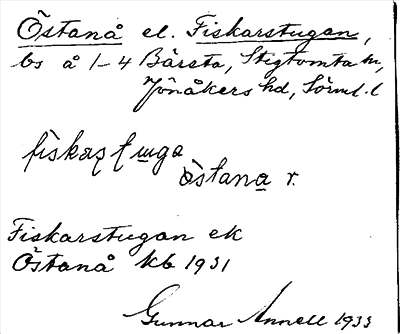 Östanå el. Fiskarstugan,
bs å 1–4 Bärsta, Stigtomta sn,
Jönåkers hd, Sörml. l
östana r.
Fiskarstugan ek
Östanå kb 1931
Gunnar Annell 1933